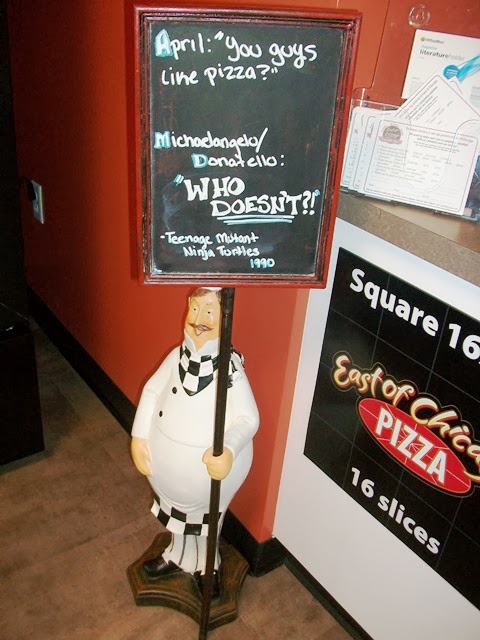 April: "You guys
like pizza?"
Michaelangelo/
Donatello:
"WHO
DOESN'T?!"
- Teenage Mutant
Ninja Turtles
1990
literature
Square 16
East of Chica
PIZZA
16 slices